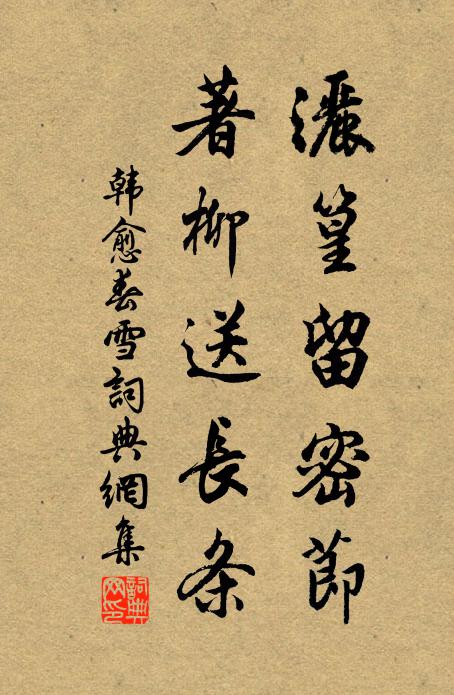 灑篁留密節
著柳送長条
韓愈春雪詞典網集
詞典網印